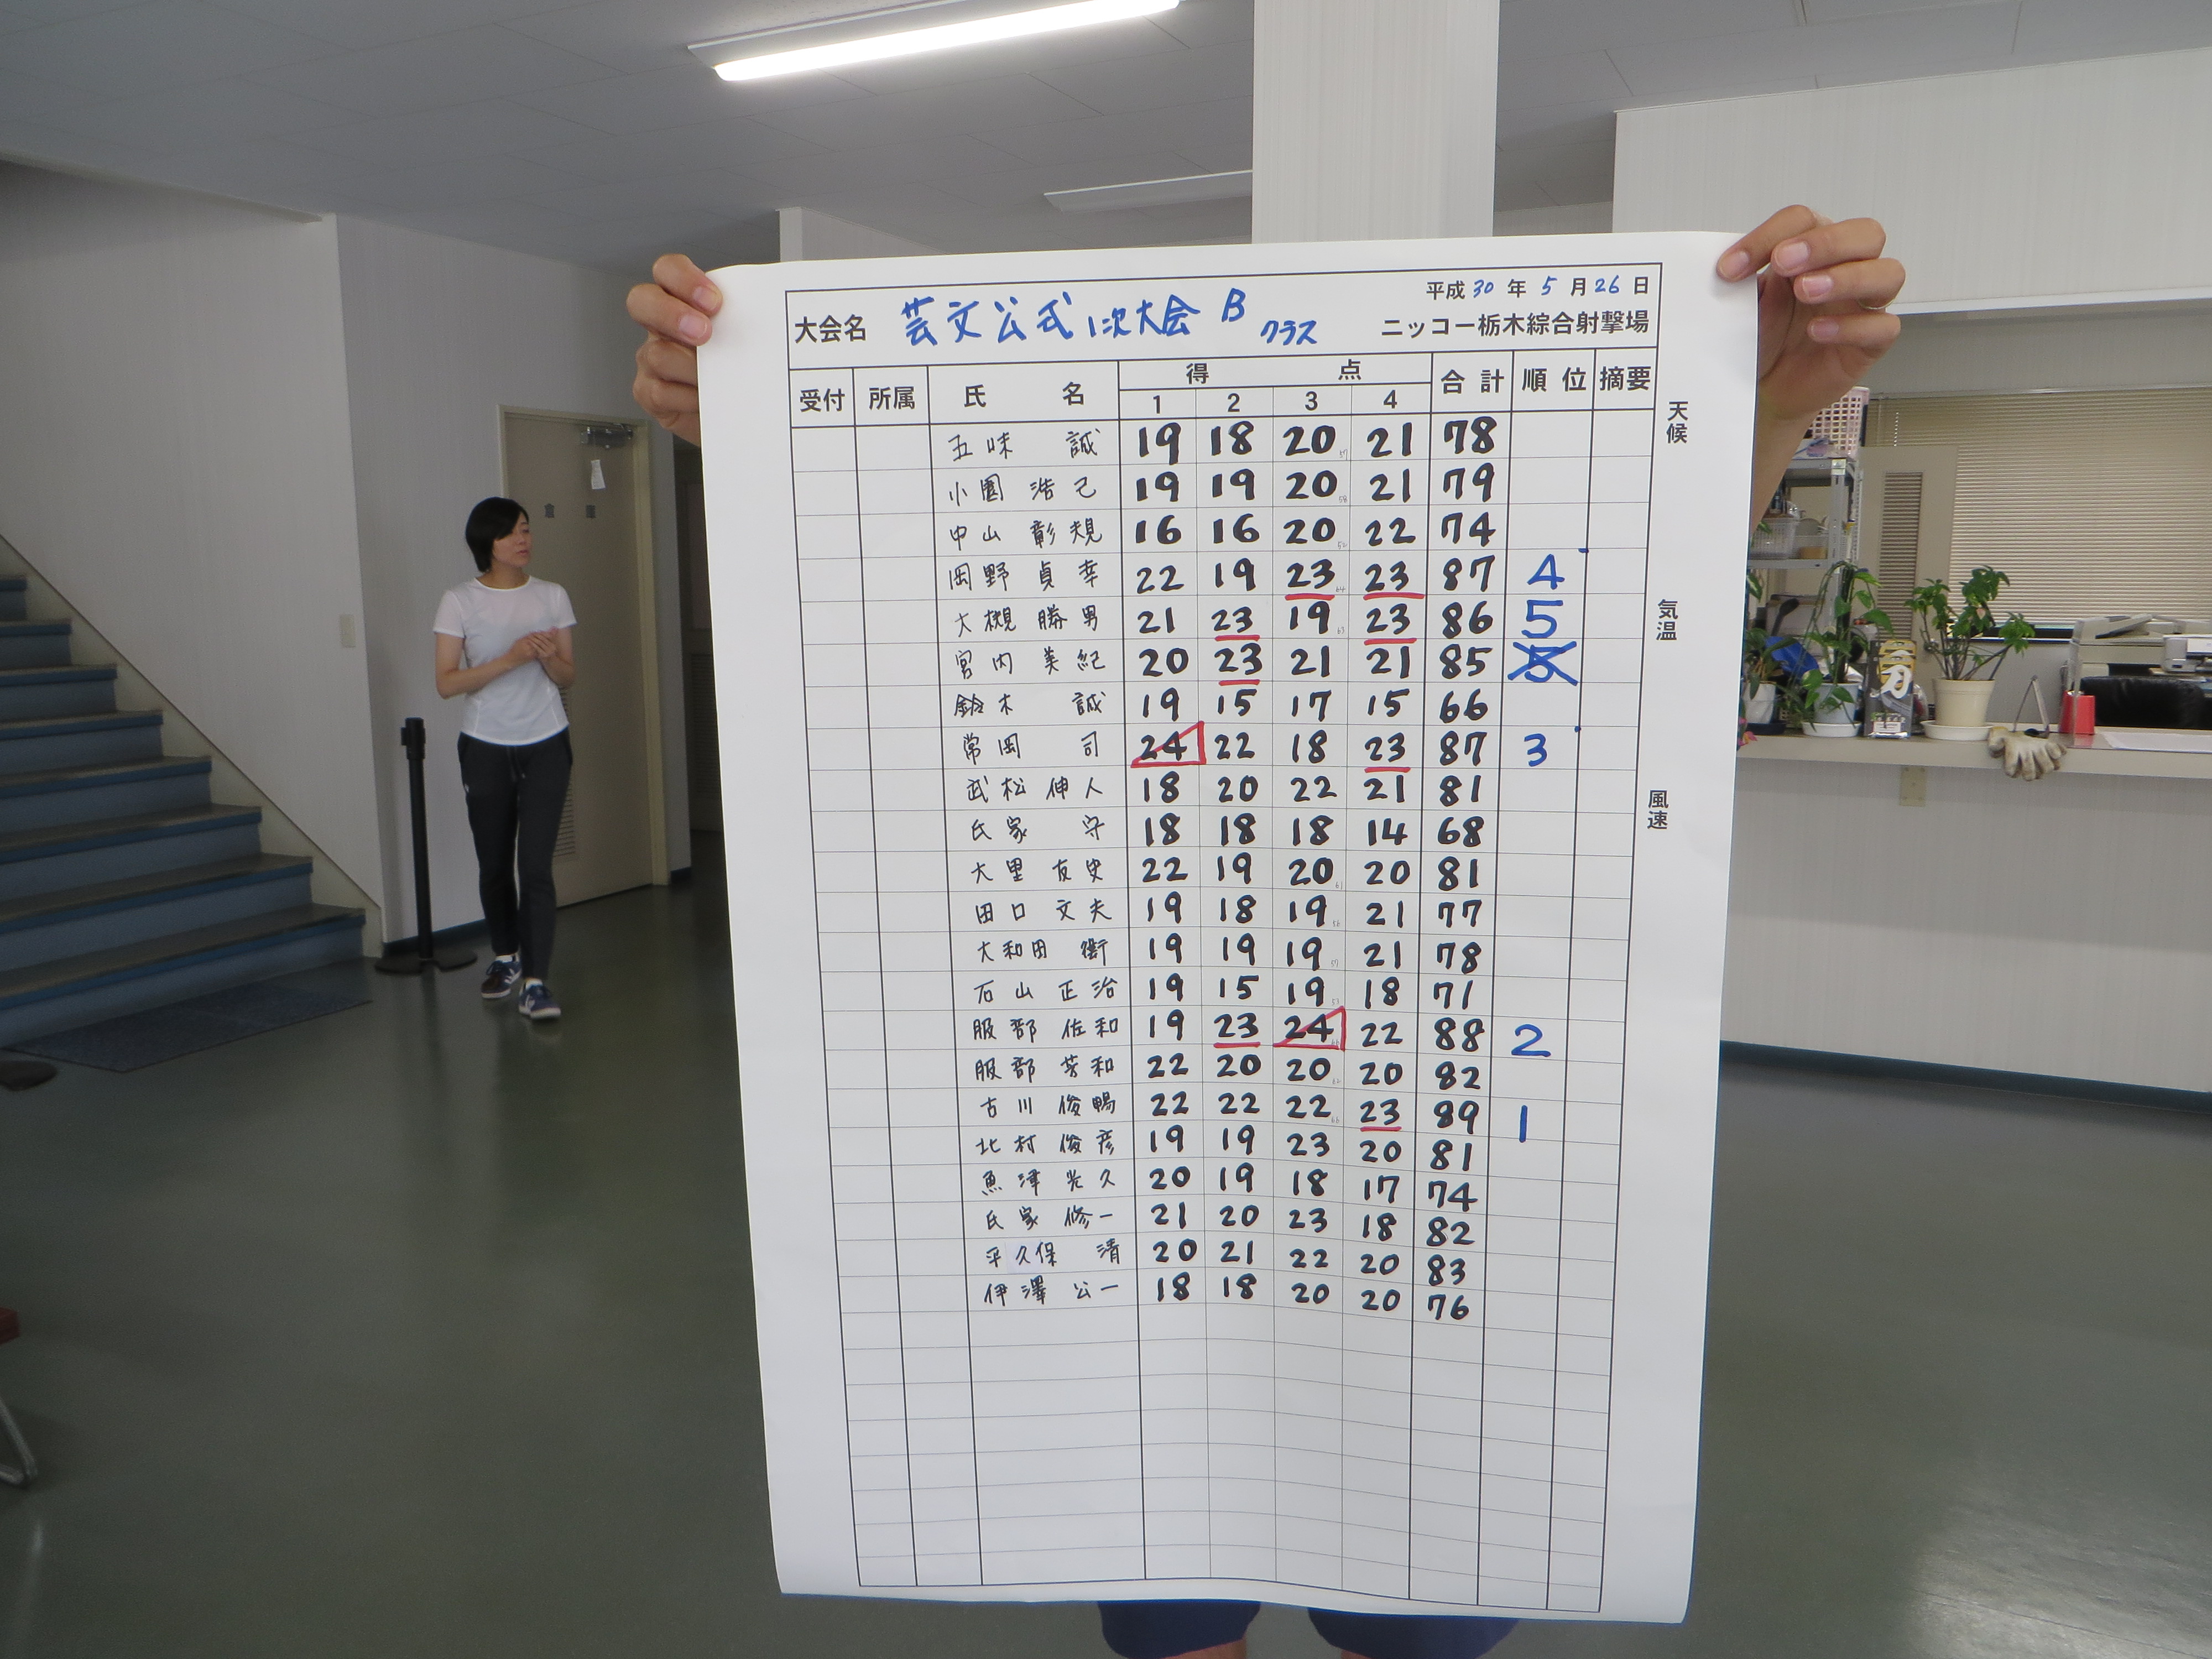 平成30年5月26日
大会名 芸文公式1次大会 B クラス ニッコー栃木綜合射撃場
受付 所属 氏名 得点 合計 順位 摘要
1 2 3 4
天候
気温
風速
五味 誠 19 18 20 21 78
小園 浩己 19 19 20 21 79
中山 彰規 16 16 20 22 74
岡野 貞幸 22 19 23 23 87 4
大槻 勝男 21 23 19 23 86 5
宮内 美紀 20 23 21 21 85 5
鈴木 誠 19 15 17 15 66
常岡 司 24 22 18 23 87 3
武松 伸人 18 20 22 21 81
氏家 守 18 18 18 14 68
大里 友史 22 19 20 20 81
田口 文夫 19 18 19 21 77
大和田 衛 19 19 19 21 78
石山 正治 19 15 19 18 71
服部 佐和 19 23 24 22 88 2
服部 芳和 22 20 20 20 82
古川 俊暢 22 22 22 23 89 1
北村 俊彦 19 19 23 20 81
魚津 光久 20 19 18 17 74
氏家 修一 21 20 23 18 82
平久保 清 20 21 22 20 83
伊澤 公一 18 18 20 20 76